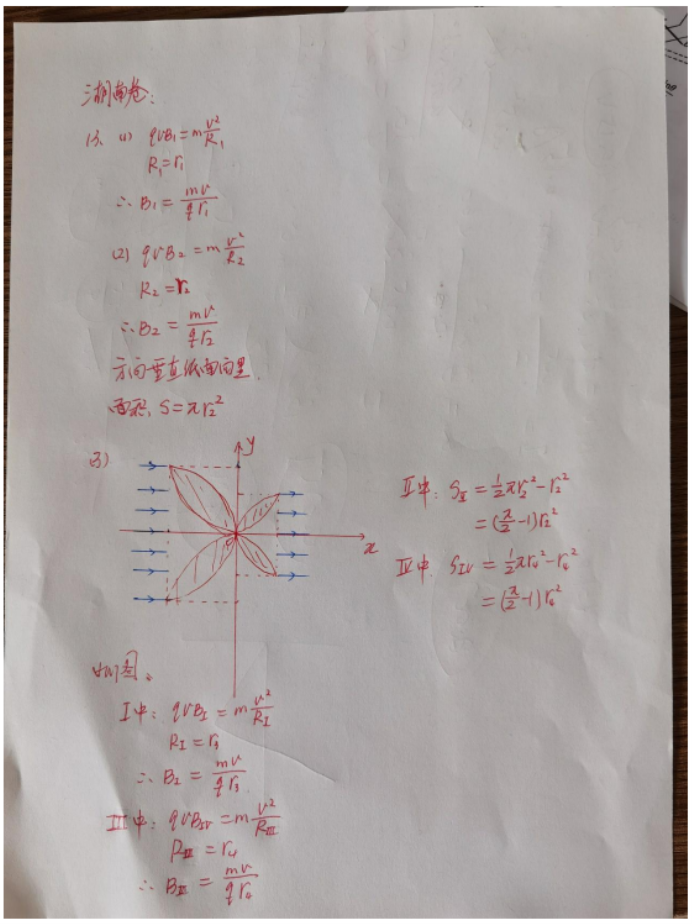 湖南卷:
13. (1) qvB₁ = m v²/R₁
R₁ = r₁
∴ B₁ = mv/(q r₁)
(2) qvB₂ = m v²/R₂
R₂ = r₂
∴ B₂ = mv/(q r₂)
方向垂直纸面向里.
面积, S = πr₂²
(3)
y
x
II中: S_II = ½πr₂² - r₂²
= (π/2 - 1)r₂²
IV中: S_IV = ½πr₄² - r₄²
= (π/2 - 1)r₄²
如图。
I中: qvB_I = m v²/R_I
R_I = r₃
∴ B₂ = mv/(q r₃)
III中: qvB_IV = m v²/R_III
R_III = r₄
∴ B_III = mv/(q r₄)